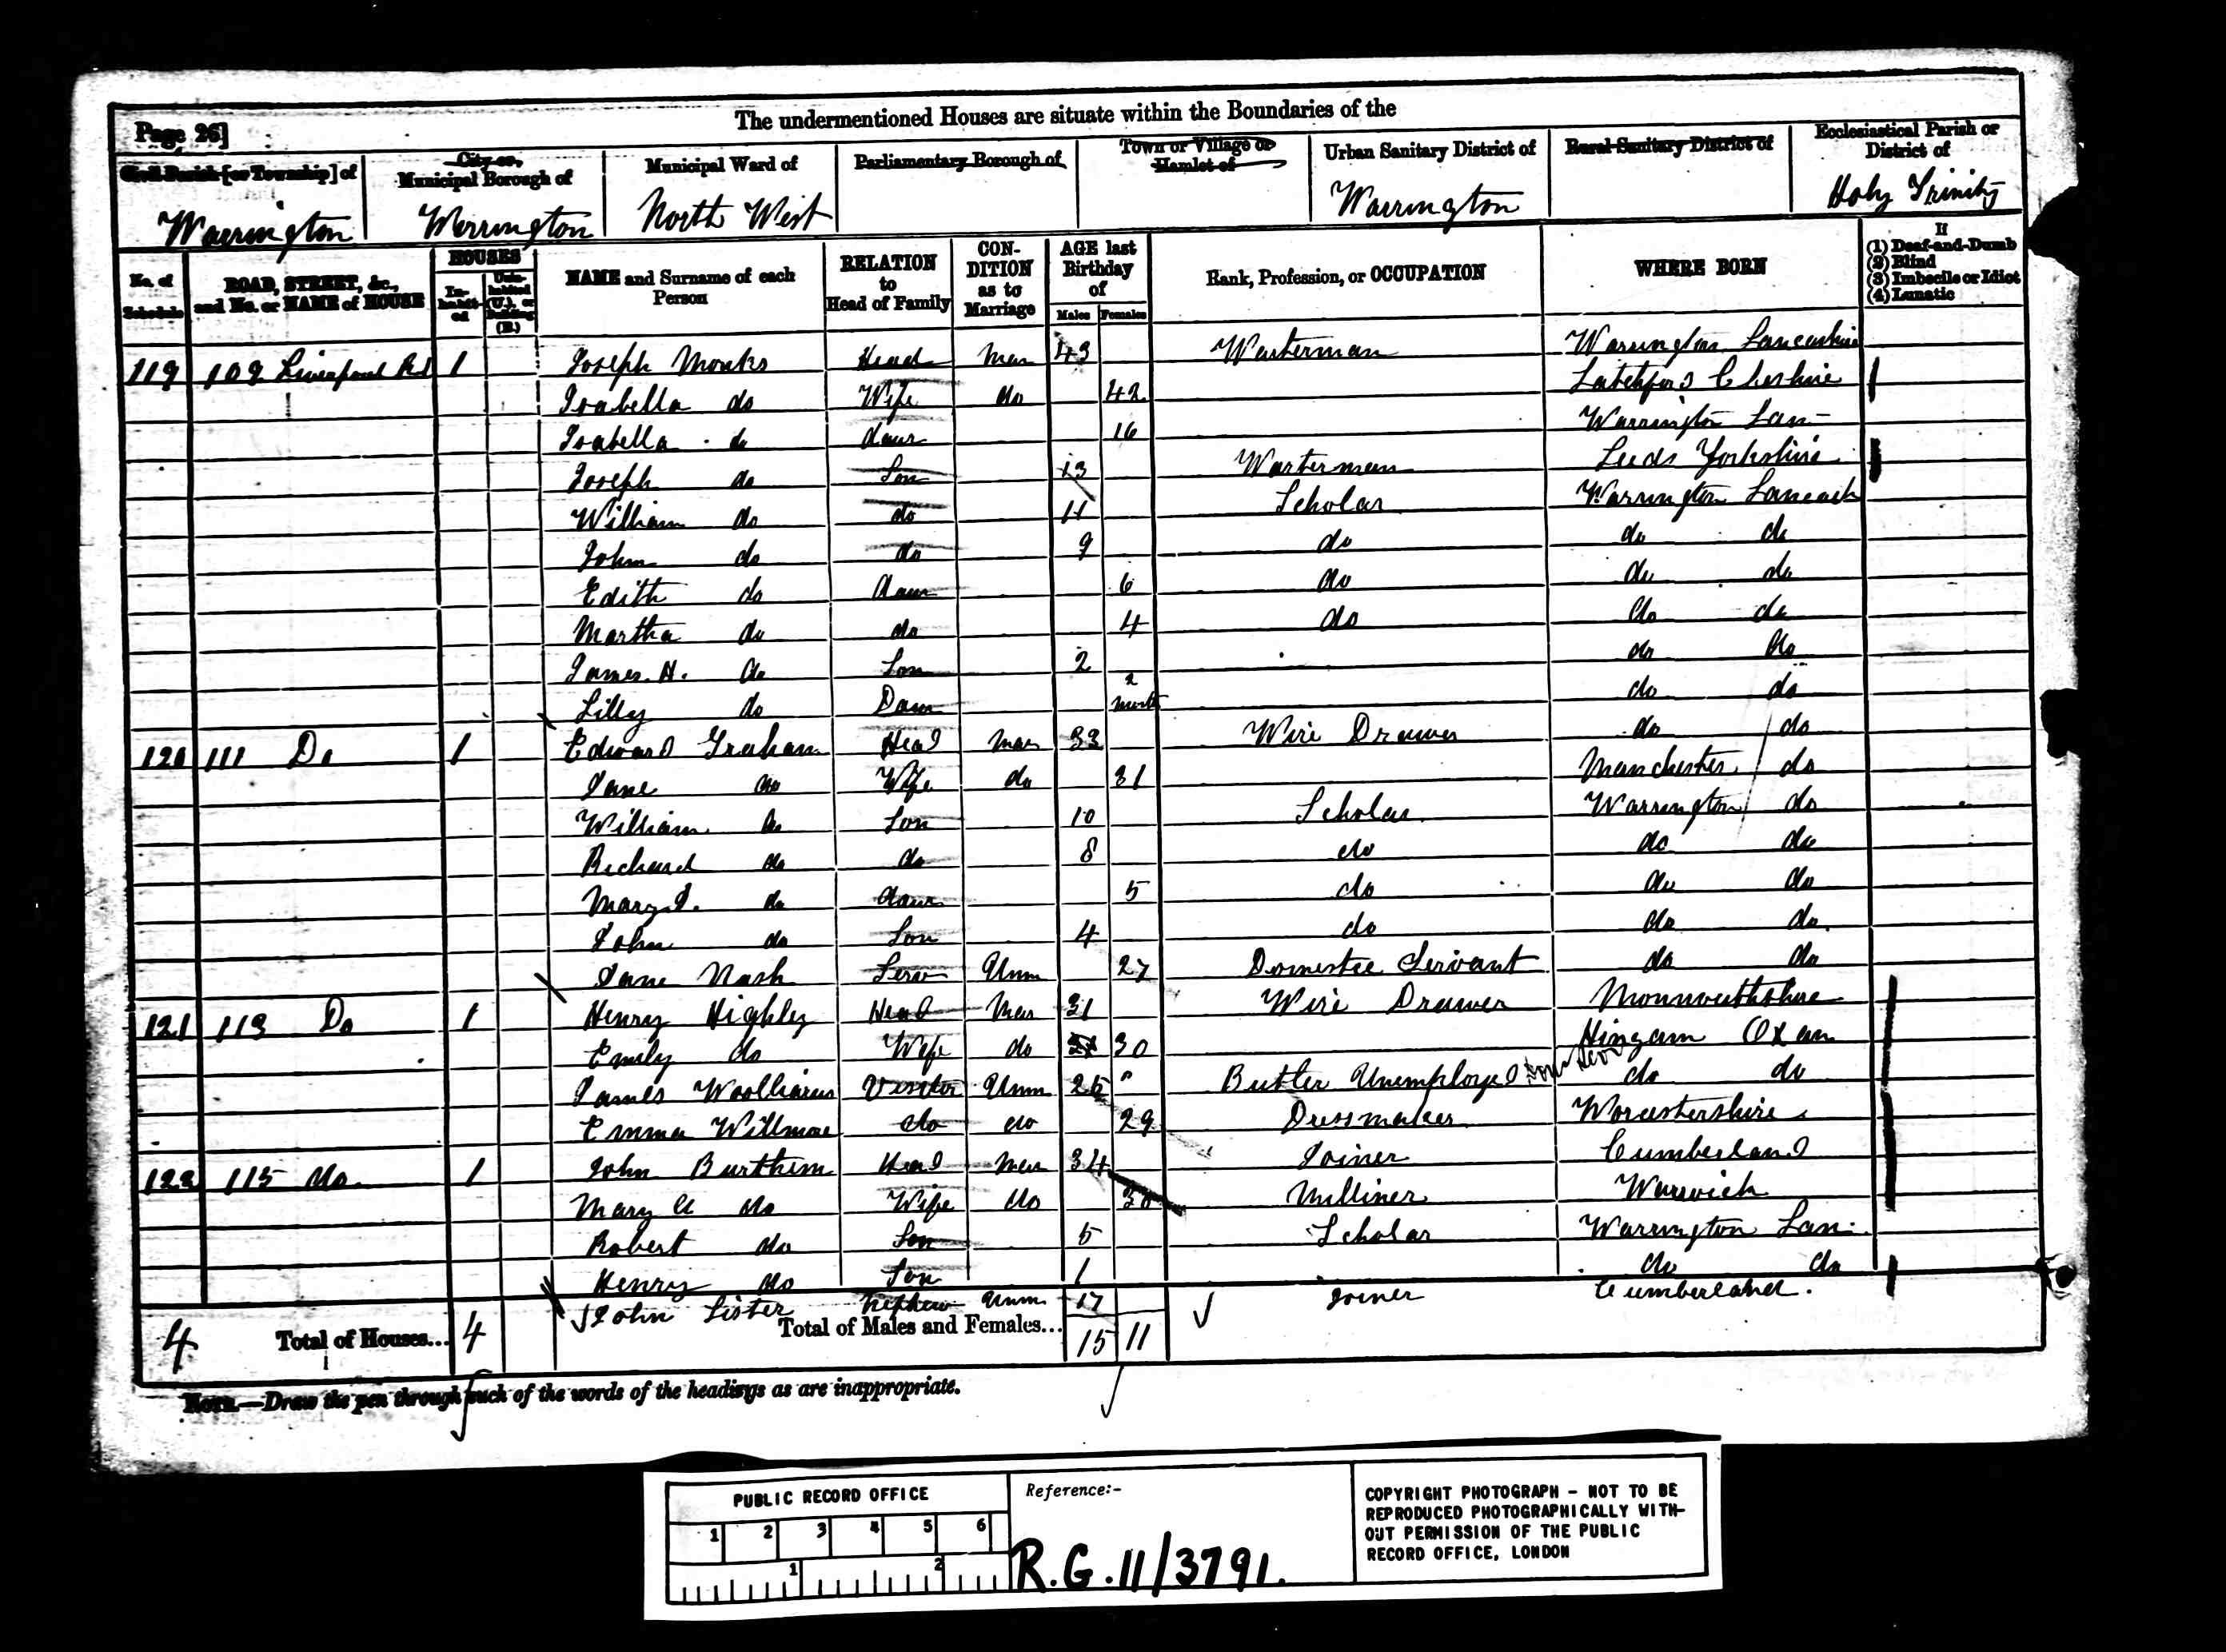 The undermentioned Houses are situate within the Boundaries of the
Page 26]
Civil Parish [or Township] of
City or Municipal Borough of
Municipal Ward of
Parliamentary Borough of
Town or Village or Hamlet of
Urban Sanitary District of
Rural Sanitary District of
Ecclesiastical Parish or District of
Warrington Warrington North West Warrington Holy Trinity
No. of Schedule
ROAD, STREET, &c., and No. or NAME of HOUSE
HOUSES
In-habit-ed
Unin-habited (U.), or Building (B.)
NAME and Surname of each Person
RELATION to Head of Family
CON-DITION as to Marriage
AGE last Birthday of
Males Females
Rank, Profession, or OCCUPATION
WHERE BORN
If
(1) Deaf-and-Dumb
(2) Blind
(3) Imbecile or Idiot
(4) Lunatic
119 109 Liverpool Rd 1 Joseph Monks Head Mar 43 Warterman Warrington Lancashire
Isabella do Wife do 42 Latchford Cheshire
Isabella do daur 16 Warrington Lan
Joseph do Son 13 Warterman Leeds Yorkshire
William do do 11 Scholar Warrington Lancash
John do do 9 do do do
Edith do daur 6 do do do
Martha do do 4 do do do
James H. do Son 2 do do
Lilly do Daur 2 do do
120 111 Do 1 Edward Graham Head Mar 33 Wire Drawer do do
Jane do Wife do 31 Manchester do
William do Son 10 Scholar Warrington do
Richard do do 8 do do do
Mary J. do daur 5 do do do
John do Son 4 do do do
Jane Nash Serv Unm 27 Domestic Servant do do
121 113 Do 1 Henry Highley Head Mar 31 Wire Drawer Monmouthshire
Emily do Wife do 30 Hingam Oxan
James Woolliams Visitor Unm 25 Butler Unemployed do do
Emma Willmore do do 29 Dressmaker Worcestershire
122 115 do 1 John Burthem Head Mar 34 Joiner Cumberland
Mary A do Wife do 30 Milliner Warwick
Robert do Son 5 Scholar Warrington Lan
Henry do Son 1 do do
John Lister Nephew Unm 17 Joiner Cumberland.
4 Total of Houses... 4 Total of Males and Females... 15 11
NOTE.—Draw the pen through such of the words of the headings as are inappropriate.
PUBLIC RECORD OFFICE
1 2 3 4 5 6
1 2
Reference:-
R.G. 11/3791.
COPYRIGHT PHOTOGRAPH - NOT TO BE
REPRODUCED PHOTOGRAPHICALLY WITH-
OUT PERMISSION OF THE PUBLIC
RECORD OFFICE, LONDON